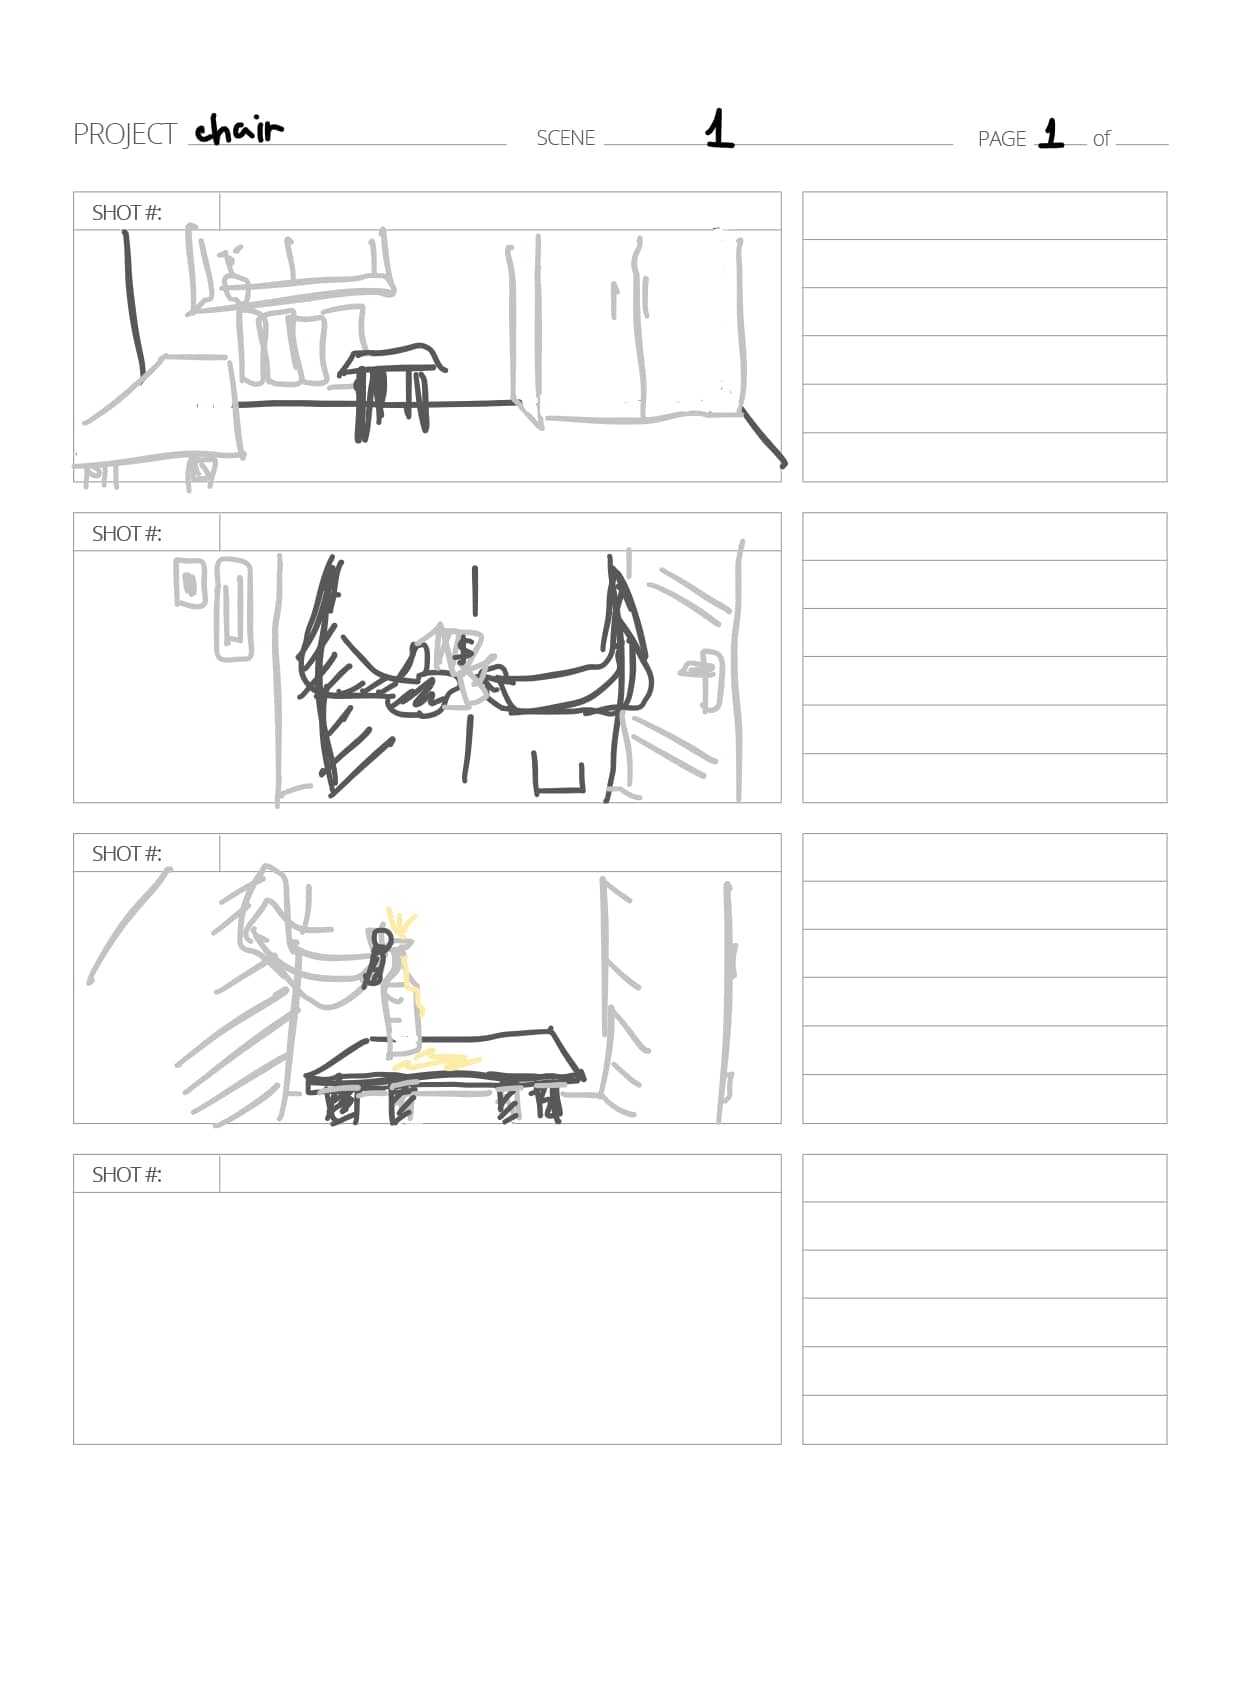 PROJECT chair SCENE 1 PAGE 1 of
SHOT #:
SHOT #:
$
SHOT #:
SHOT #: